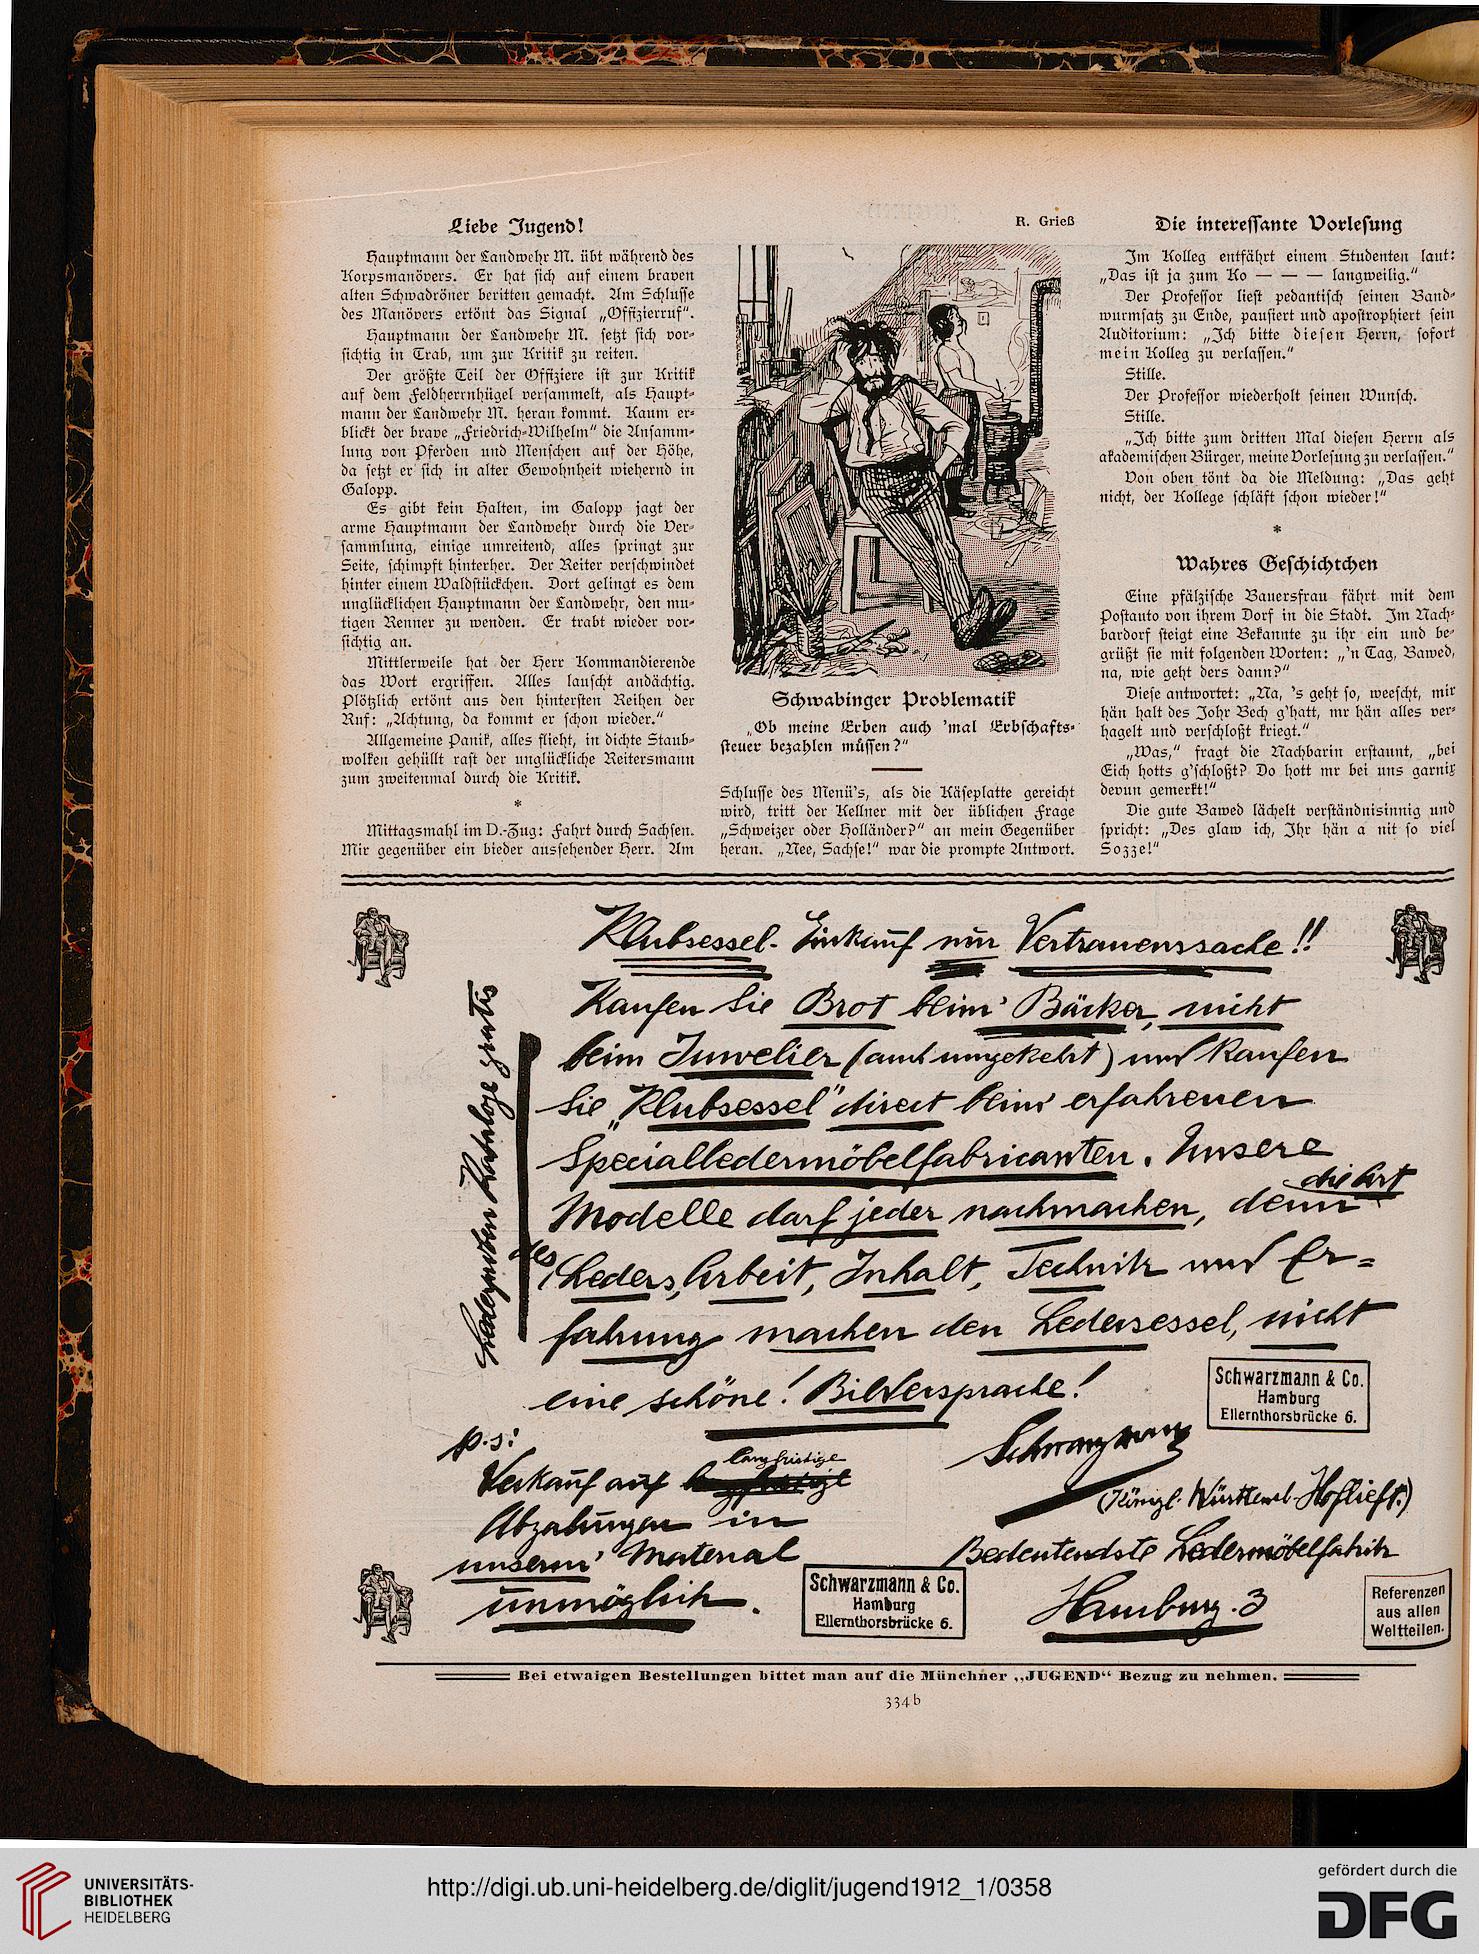 Liebe Jugend!
Hauptmann der Landwehr M. übt während des
Korpsmanövers. Er hat sich auf einem braven
alten Schwadröner beritten gemacht. Am Schlusse
des Manövers ertönt das Signal „Offizierruf“.
Hauptmann der Landwehr M. setzt sich vor-
sichtig in Trab, um zur Kritik zu reiten.
Der größte Teil der Offiziere ist zur Kritik
auf dem Feldherrnhügel versammelt, als Haupt-
mann der Landwehr M. heran kommt. Kaum er-
blickt der brave „Friedrich-Wilhelm“ die Ansamm-
lung von Pferden und Menschen auf der Höhe,
da setzt er sich in alter Gewohnheit wiehernd in
Galopp.
Es gibt kein Halten, im Galopp jagt der
arme Hauptmann der Landwehr durch die Ver-
sammlung, einige umreitend, alles springt zur
Seite, schimpft hinterher. Der Reiter verschwindet
hinter einem Waldstückchen. Dort gelingt es dem
unglücklichen Hauptmann der Landwehr, den mu-
tigen Renner zu wenden. Er trabt wieder vor-
sichtig an.
Mittlerweile hat der Herr Kommandierende
das Wort ergriffen. Alles lauscht andächtig.
Plötzlich ertönt aus den hintersten Reihen der
Ruf: „Achtung, da kommt er schon wieder.“
Allgemeine Panik, alles flieht, in dichte Staub-
wolken gehüllt rast der unglückliche Reitersmann
zum zweitenmal durch die Kritik.
*
Mittagsmahl im D.-Zug: Fahrt durch Sachsen.
Mir gegenüber ein bieder aussehender Herr. Am
R. Grieß
Schwabinger Problematik
„Ob meine Erben auch 'mal Erbschafts-
steuer bezahlen müssen?“
Schlusse des Menü's, als die Käseplatte gereicht
wird, tritt der Kellner mit der üblichen Frage
„Schweizer oder Holländer?“ an mein Gegenüber
heran. „Nee, Sachse!“ war die prompte Antwort.
Die interessante Vorlesung
Im Kolleg entfährt einem Studenten laut:
„Das ist ja zum Ko — — — langweilig.“
Der Professor liest pedantisch seinen Band-
wurmsatz zu Ende, pausiert und apostrophiert sein
Auditorium: „Ich bitte diesen Herrn, sofort
mein Kolleg zu verlassen.“
Stille.
Der Professor wiederholt seinen Wunsch.
Stille.
„Ich bitte zum dritten Mal diesen Herrn als
akademischen Bürger, meine Vorlesung zu verlassen.“
Von oben tönt da die Meldung: „Das geht
nicht, der Kollege schläft schon wieder!“
*
Wahres Geschichtchen
Eine pfälzische Bauersfrau fährt mit dem
Postauto von ihrem Dorf in die Stadt. Im Nach-
bardorf steigt eine Bekannte zu ihr ein und be-
grüßt sie mit folgenden Worten: „'n Tag, Bawed,
na, wie geht ders dann?“
Diese antwortet: „Na, 's geht so, weescht, mir
hän halt des Johr Bech g'hatt, mr hän alles ver-
hagelt und verschloßt kriegt.“
„Was,“ fragt die Nachbarin erstaunt, „bei
Eich hotts g'schloßt? Do hott mr bei uns garnix
devun gemerkt!“
Die gute Bawed lächelt verständnisinnig und
spricht: „Des glaw ich, Ihr hän a nit so viel
Sozze!“
Klubsessel-Einkauf nur Vertrauenssache!!
Kaufen Sie Brot beim Bäcker, nicht
beim Juwelier (auch umgekehrt) und kaufen
Sie „Klubsessel“ direct beim erfahrenen
Specialledermöbelfabricanten. Unsere
Modelle darf jeder nachmachen, denn die Art
des Leders, Arbeit, Inhalt, Technik und Er=
fahrung machen den Ledersessel, nicht
eine schöne! Bildersprache!
Lederproben Kataloge gratis
Schwarzmann & Co.
Hamburg
Ellernthorsbrücke 6.
p.s:
Verkauf auf langfristige
Abzahlungen in
unserm Material
unmöglich.
Schwarzmann
(Königl. Württemb. Hoflieft.)
Bedeutendste Ledermöbelfabrik
Hamburg. 3
Schwarzmann & Co.
Hamburg
Ellernthorsbrücke 6.
Referenzen
aus allen
Weltteilen.
Bei etwaigen Bestellungen bittet man auf die Münchner „JUGEND“ Bezug zu nehmen.
334b
UNIVERSITÄTS-
BIBLIOTHEK
HEIDELBERG
http://digi.ub.uni-heidelberg.de/diglit/jugend1912_1/0358
gefördert durch die
DFG